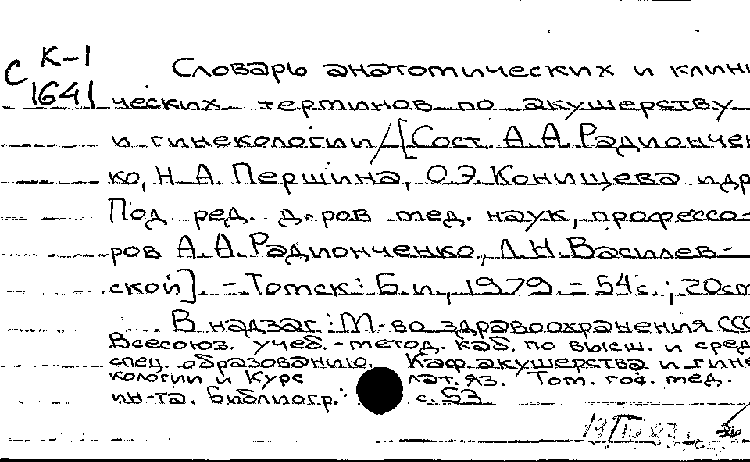 С К-1
1641
Словарь анатомических и клини
ческих терминов по акушерству
и гинекологии/[Сост. А.А.Радиончен
ко, Н.А.Першина, О.Э.Конищева и др.
Под ред. д-ров мед. наук, профессо-
ров А.А.Радионченко, Л.Н.Василев-
ской]. - Томск: Б.и., 1979. - 54 с.; 20 см
В надзаг.: М-во здравоохранения ССС
Всесоюз. учеб.-метод. каб. по высш. и сред
спец. образованию. Каф. акушерства и гине
кологии и Курс лат. яз. Том. гос. мед.
ин-та. Библиогр.: с. 53